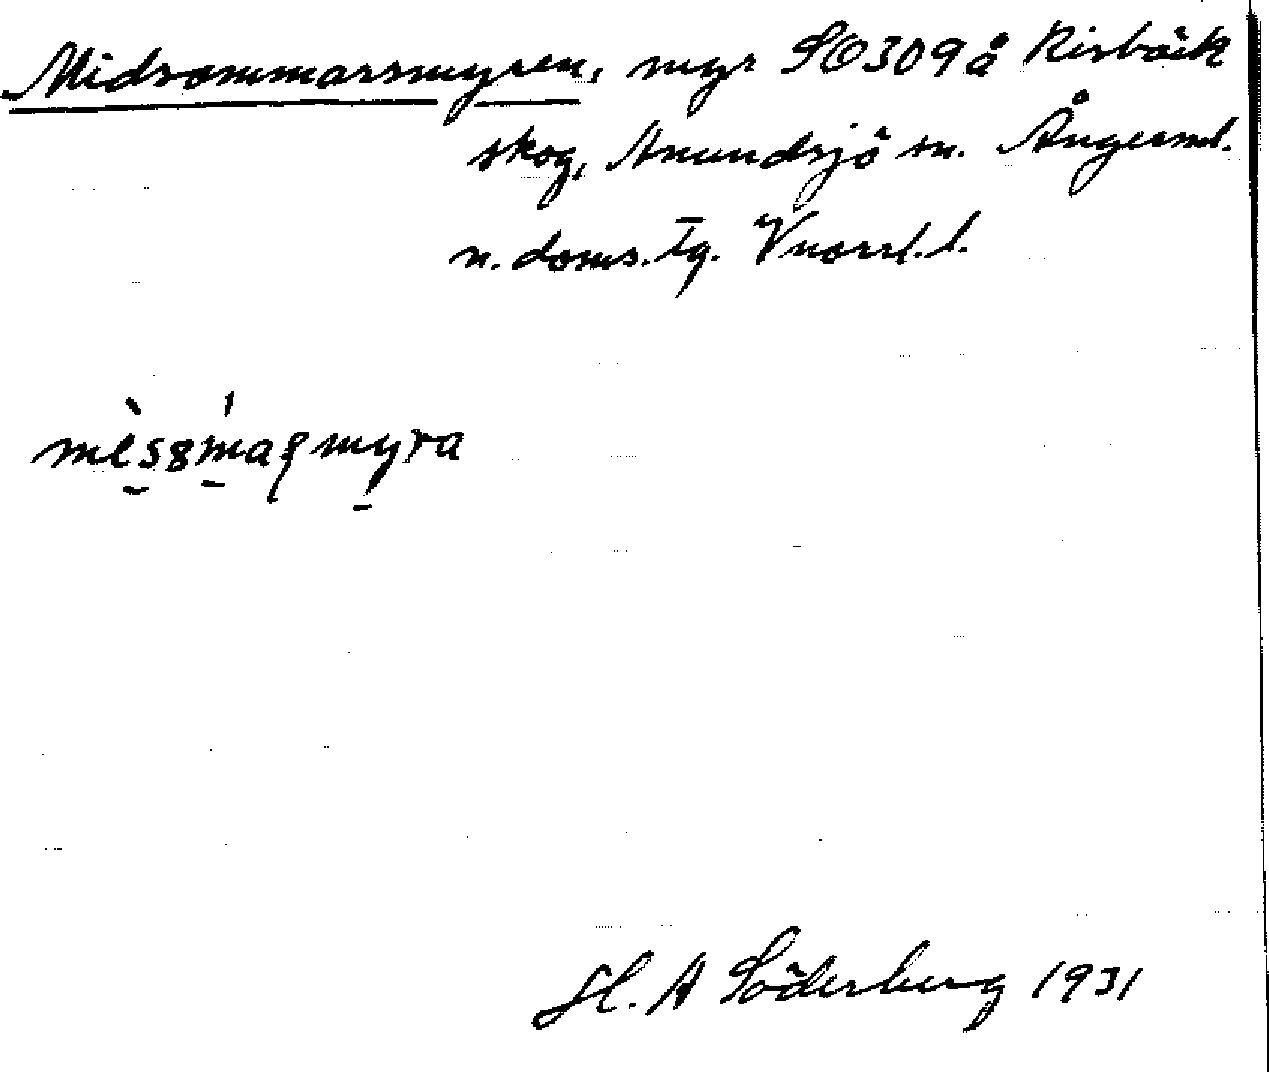 Midsommarsmyren, myr SO309 å Risbäck
skog, Anundsjö sn. Ångerml.
n. doms. tg. Vnorrl. l.
mèssmarmyra
H. A Söderberg 1931